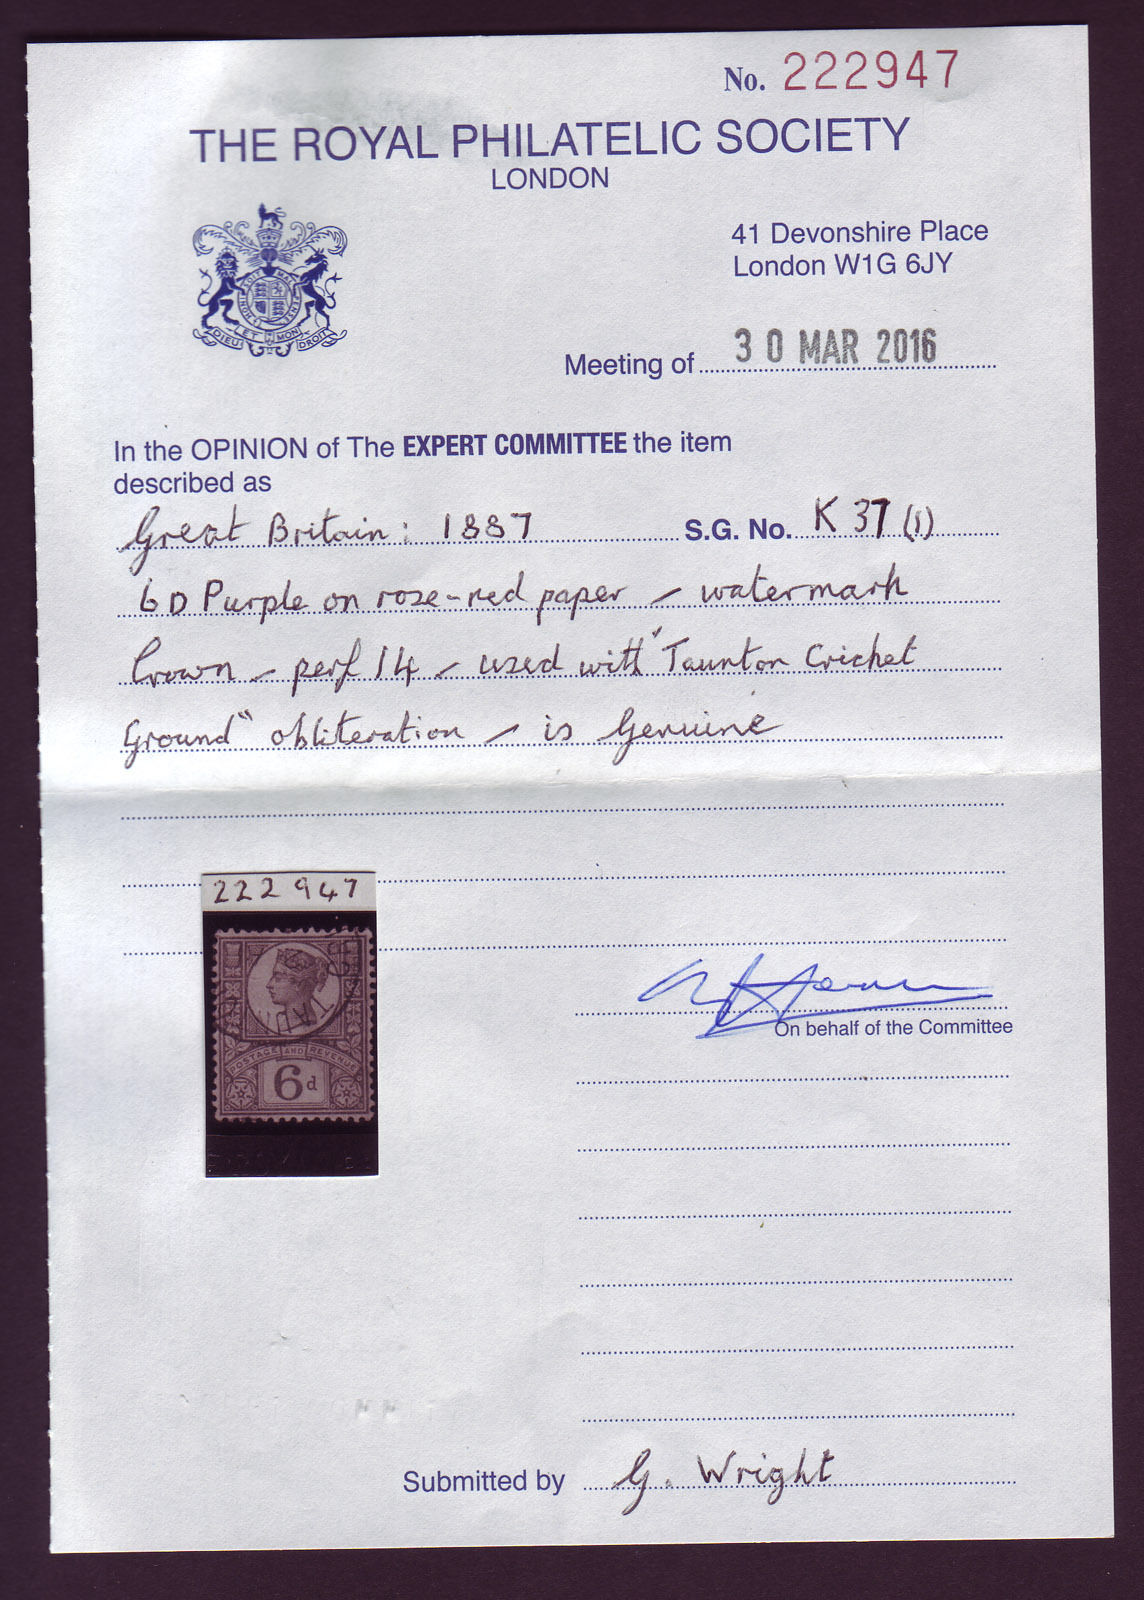 No. 222947
THE ROYAL PHILATELIC SOCIETY
LONDON
41 Devonshire Place
London W1G 6JY
DIEU ET MON DROIT
Meeting of 30 MAR 2016
In the OPINION of The EXPERT COMMITTEE the item
described as
Great Britain: 1887 S.G. No. K37 (1)
6D Purple on rose-red paper – watermark
Crown – perf 14 – used with "Taunton Cricket
Ground" obliteration – is Genuine
222947
POSTAGE AND REVENUE
6d
On behalf of the Committee
Submitted by G. Wright